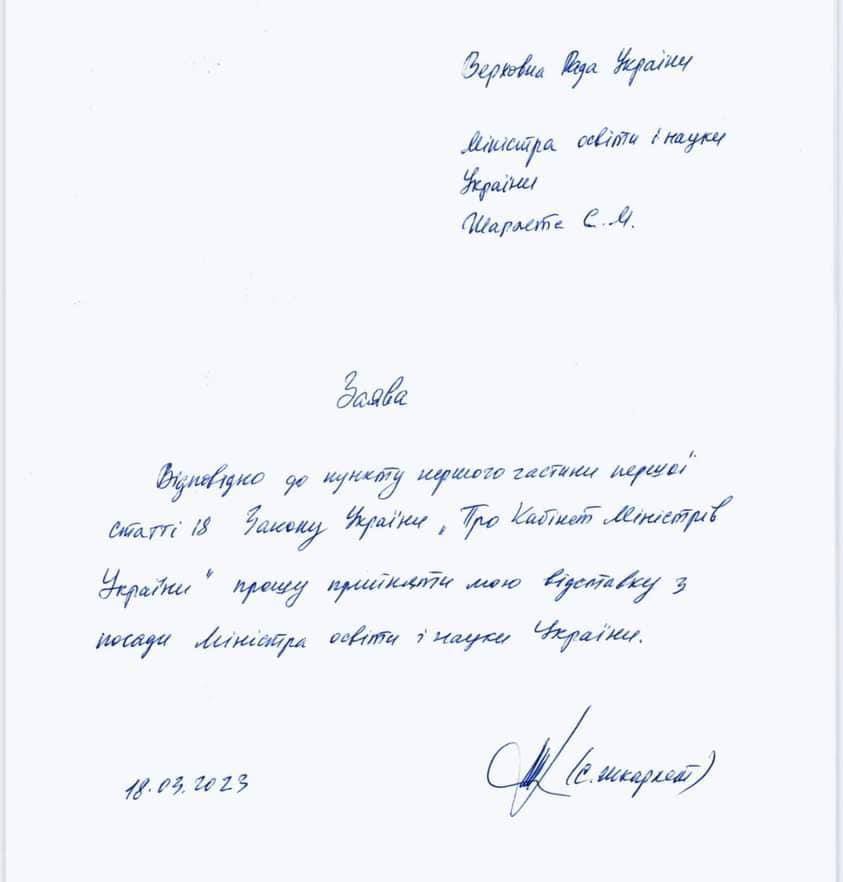 Верховна Рада України
Міністра освіти і науки
України
Шкарлета С. М.
Заява
Відповідно до пункту першого частини першої
статті 18 Закону України „Про Кабінет Міністрів
України" прошу прийняти мою відставку з
посади Міністра освіти і науки України.
18.03.2023 (С. Шкарлет)